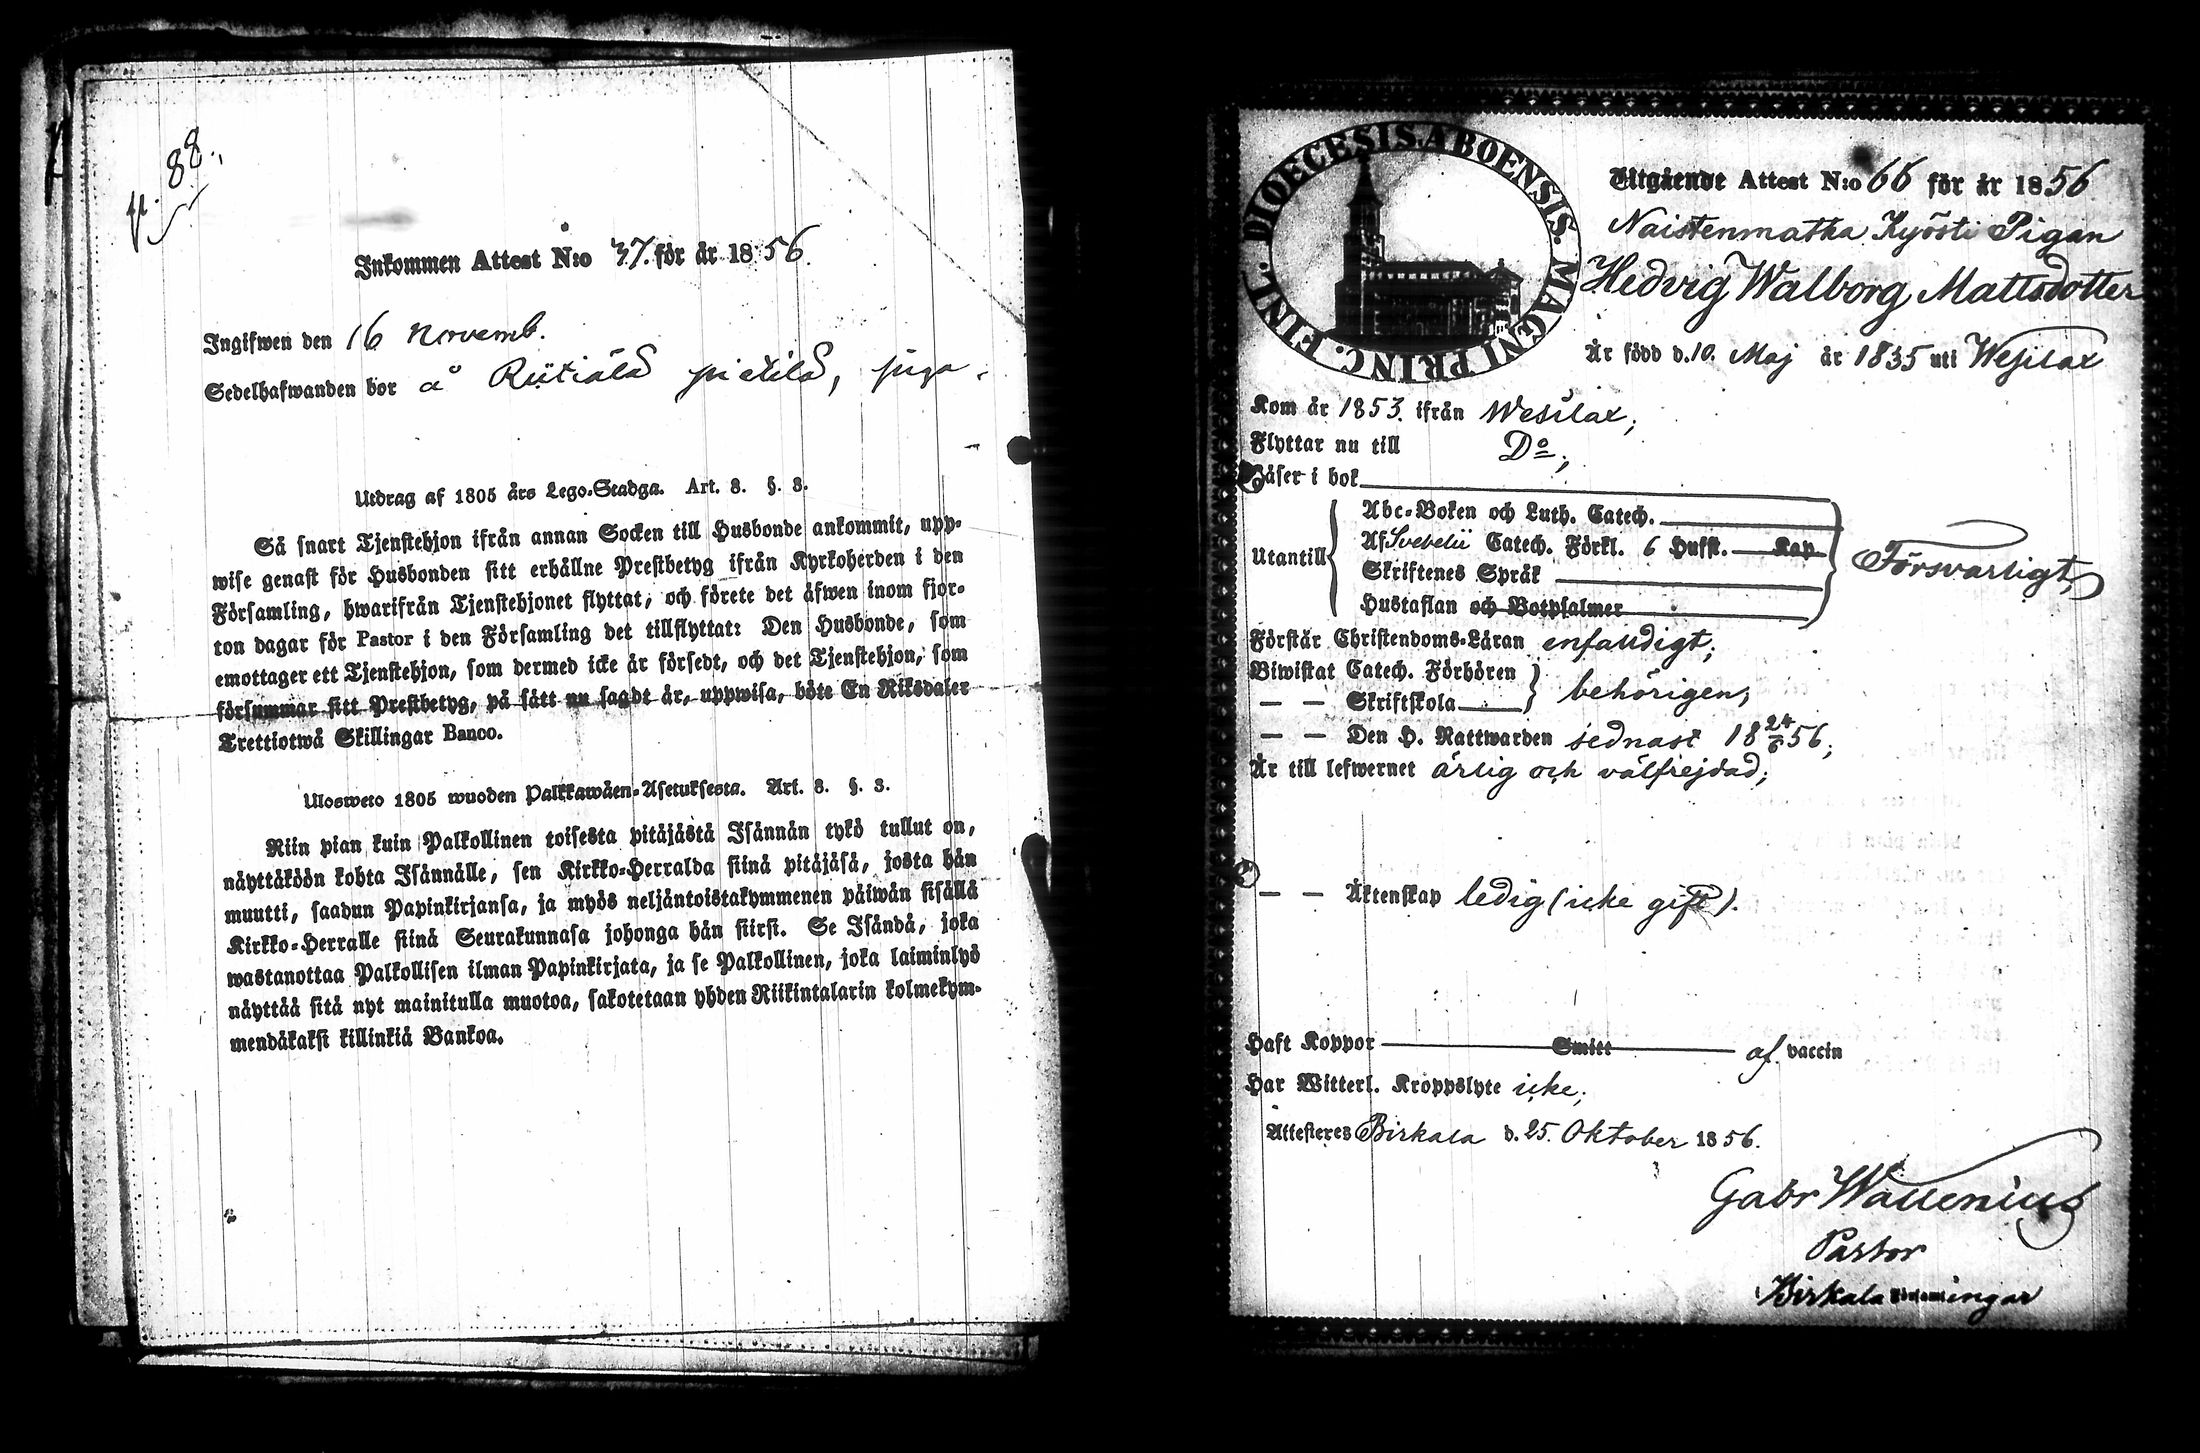 88.
Inkommen Attest N:o 37. för år 1856.
Ingifwen den 16 Novemb.
Sedelhafwanden bor å piga.
Utdrag af 1805 års Lego-Stadga. Art. 8. §. 3.
Så snart Tjenstehjon ifrån annan Socken till Husbonde ankommit, upp-
wise genast för Husbonden sitt erhållne Prestbetyg ifrån Kyrkoherden i den
Församling, hwarifrån Tjenstehjonet flyttat, och förete det äfwen inom fjor-
ton dagar för Pastor i den Församling det tillflyttat: Den Husbonde, som
emottager ett Tjenstehjon, som dermed icke är försedt, och det Tjenstehjon, som
försummar sitt Prestbetyg, på sätt nu sagdt är, uppwisa, böte En Riksdaler
Trettiotwå Skillingar Banco.
Ulosweto 1805 wuoden Palkkawäen-Asetuksesta. Art. 8. §. 3.
Niin pian kuin Palkollinen toisesta pitäjästä Isännän tykö tullut on,
näyttäköön kohta Isännälle, sen Kirkko-Herralda siinä pitäjäsä, josta hän
muutti, saadun Papinkirjansa, ja myös neljäntoistakymmenen päiwän sisällä
Kirkko-Herralle siinä Seurakunnasa johonga hän siirsi. Se Isändä, joka
wastanottaa Palkollisen ilman Papinkirjata, ja se Palkollinen, joka laiminlyö
näyttää sitä nyt mainitulla muotoa, sakotetaan yhden Riikintalarin kolmekym-
mendäkaksi killinkiä Bankoa.
DIOECESIS. ABOENSIS. MAGNI PRINC. FINL.
Utgående Attest N:o 66 för år 1856
Naistenmatka Kyösti Pigan
Hedvig Walborg Mattsdotter
Är född d. 10. Maj år 1835 uti Wesilax
Kom år 1853. ifrån Wesilax;
Flyttar nu till Do;
Läser i bok
Utantill
Abc-Boken och Luth. Catech.
Af Svebelii Catech. Förkl. 6 Hufst. Kap
Skriftenes Språk
Hustaflan och Botpsalmer
Försvarligt;
Förstår Christendoms-Läran enfaldigt;
Biwistat Catech. Förhören
— — Skriftskola behörigen;
— — Den H. Nattwarden sednast 18 24/6 56;
Är till lefwernet ärlig och välfrejdad;
— — Äktenskap ledig (icke gift).
Haft Koppor Smitt af vaccin
Har Witterl. Kroppslyte icke;
Attesteres Birkala d. 25. Oktober 1856.
Gabr Wallenius
Pastor
Birkala Församlingar